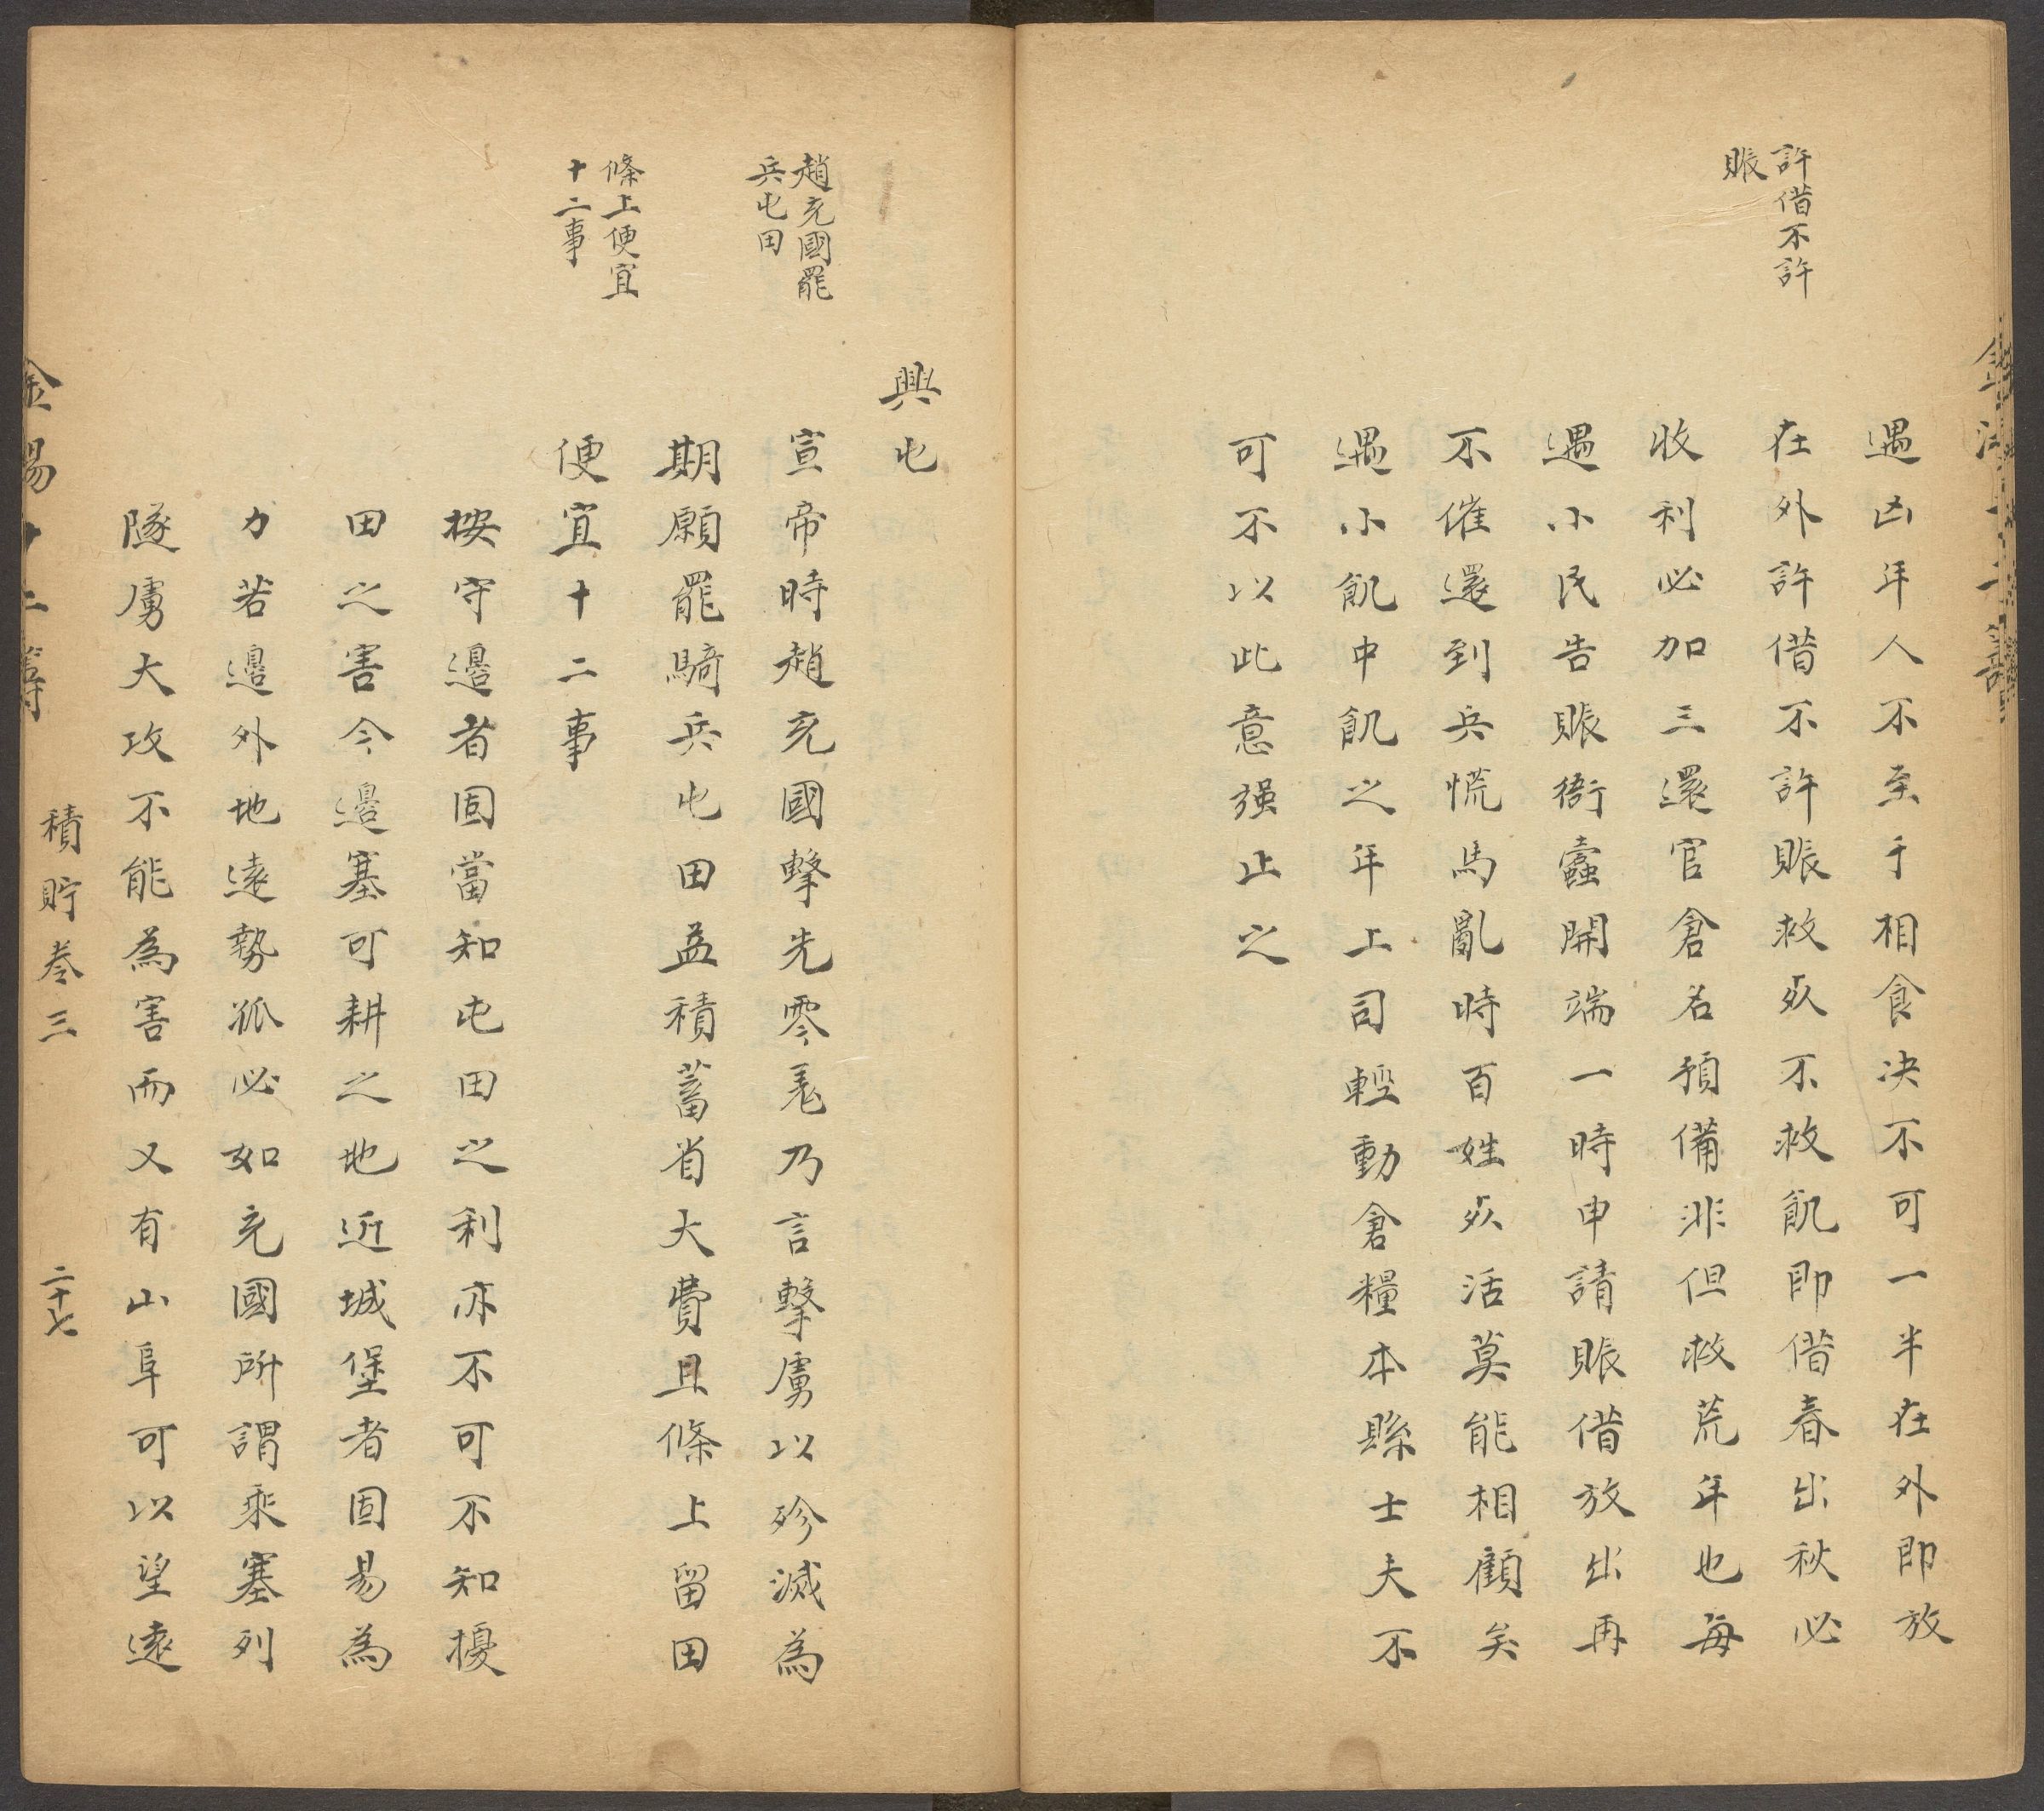 許借不許
賑
遇凶年人不至于相食决不可一半在外即放
在外許借不許賑救死不救飢即借春出秋必
收利必加三還官倉名預備非但救荒年也每
遇小民告賑衙蠹開端一時申請賑借放出再
不催還到兵慌馬亂時百姓死活莫能相顧矣
遇小飢中飢之年上司輕動倉糧本縣士夫不
可不以此意强止之
興屯
趙充國罷
兵屯田
宣帝時趙充國擊先零羌乃言擊虜以殄滅為
期願罷騎兵屯田益積蓄省大費且條上留田
條上便宜
十二事
便宜十二事
按守邊者固當知屯田之利亦不可不知擾
田之害今邊塞可耕之地近城堡者固易為
力若邊外地遠勢孤必如充國所謂乘塞列
隧虜大攻不能為害而又有山阜可以望遠
金湯十二籌 積貯卷三 二十七